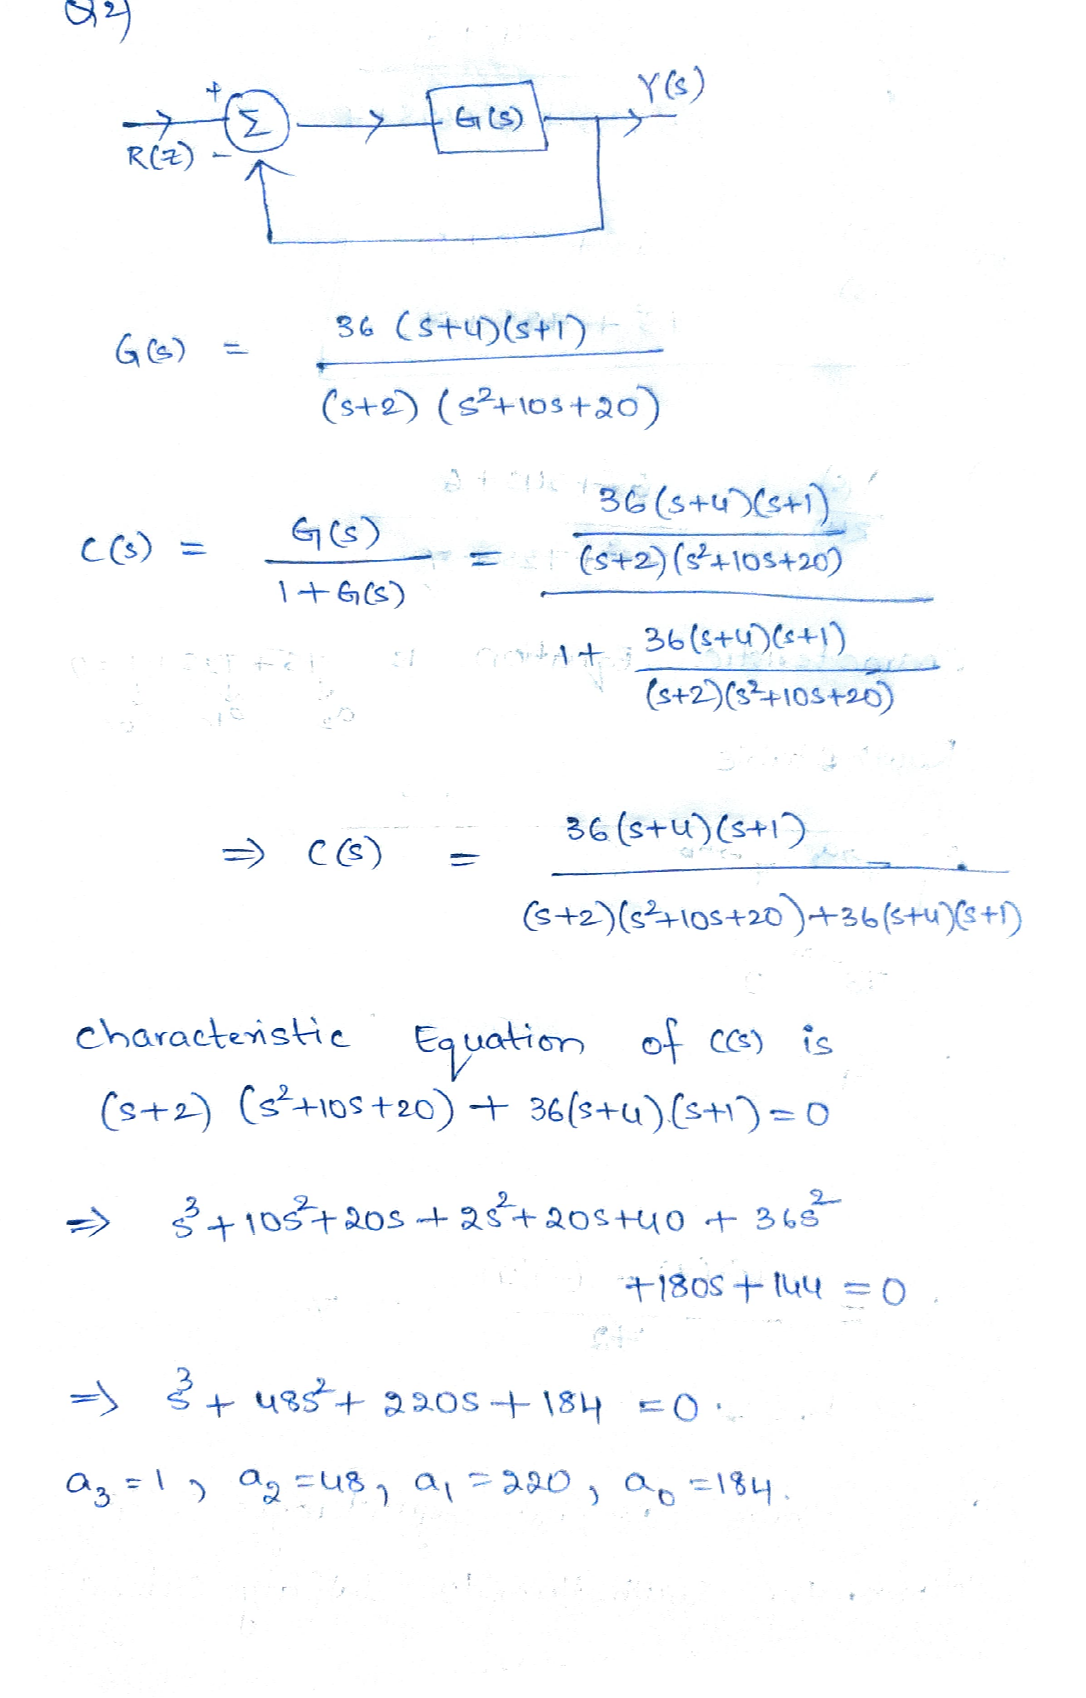 Q2)
+ Σ G(s) Y(s)
R(z) -
G(s) = 36 (s+4)(s+1) / (s+2) (s²+10s+20)
C(s) = G(s) / 1+G(s) = 36(s+4)(s+1) / (s+2)(s²+10s+20) / 1+ 36(s+4)(s+1) / (s+2)(s²+10s+20)
⇒ C(s) = 36(s+4)(s+1) / (s+2)(s²+10s+20)+36(s+4)(s+1)
characteristic Equation of C(s) is
(s+2) (s²+10s+20) + 36(s+4).(s+1)=0
⇒ s³+10s²+20s+2s²+20s+40 + 36s²
+180s+144 =0.
⇒ s³+48s²+220s+184 =0.
a₃=1, a₂=48, a₁=220, a₀=184.